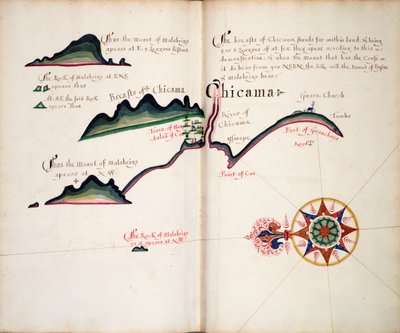 Thus the mount of Malabrigo
apears at 7 or 8 Leagues distant
The Rock of Malabrigo at ENE
apears thus
At SE the said Rock
apears Thus
Breasts of Chicama
Town of
Thus the Mount of Malabrigo
apears at N.W.
The Rock of Malabrigo
as it apears at NW
The breasts of Chicama stands far within land & being
4 or 5 Leagues of at sea they apear according to this
demonstration: & when the mount that has the Cross on
it do bear from you
of malabrigo bears
Chicama
River of
Chicama
Guara Church
Port of Guanchaco
Point of Cao